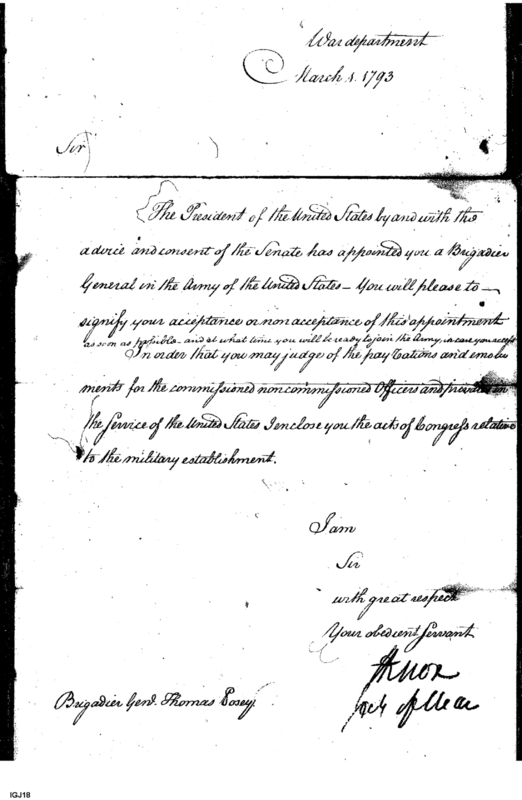 War department
March 1. 1793
Sir
The President of the United States by and with the
advice and consent of the Senate has appointed you a Brigadier
General in the Army of the United States — You will please to —
signify your acceptance or non acceptance of this appointment
as soon as possible - and at what time you will be ready to join the Army, in case you accept
In order that you may judge of the pay rations and emolu
ments for the commissioned non commissioned Officers and privates in
the service of the United States I enclose you the acts of Congress relative
to the military establishment.
I am
Sir
with great respect
Your obedient Servant
HKnox
secy of War
Brigadier Genl. Thomas Posey
IGJ18